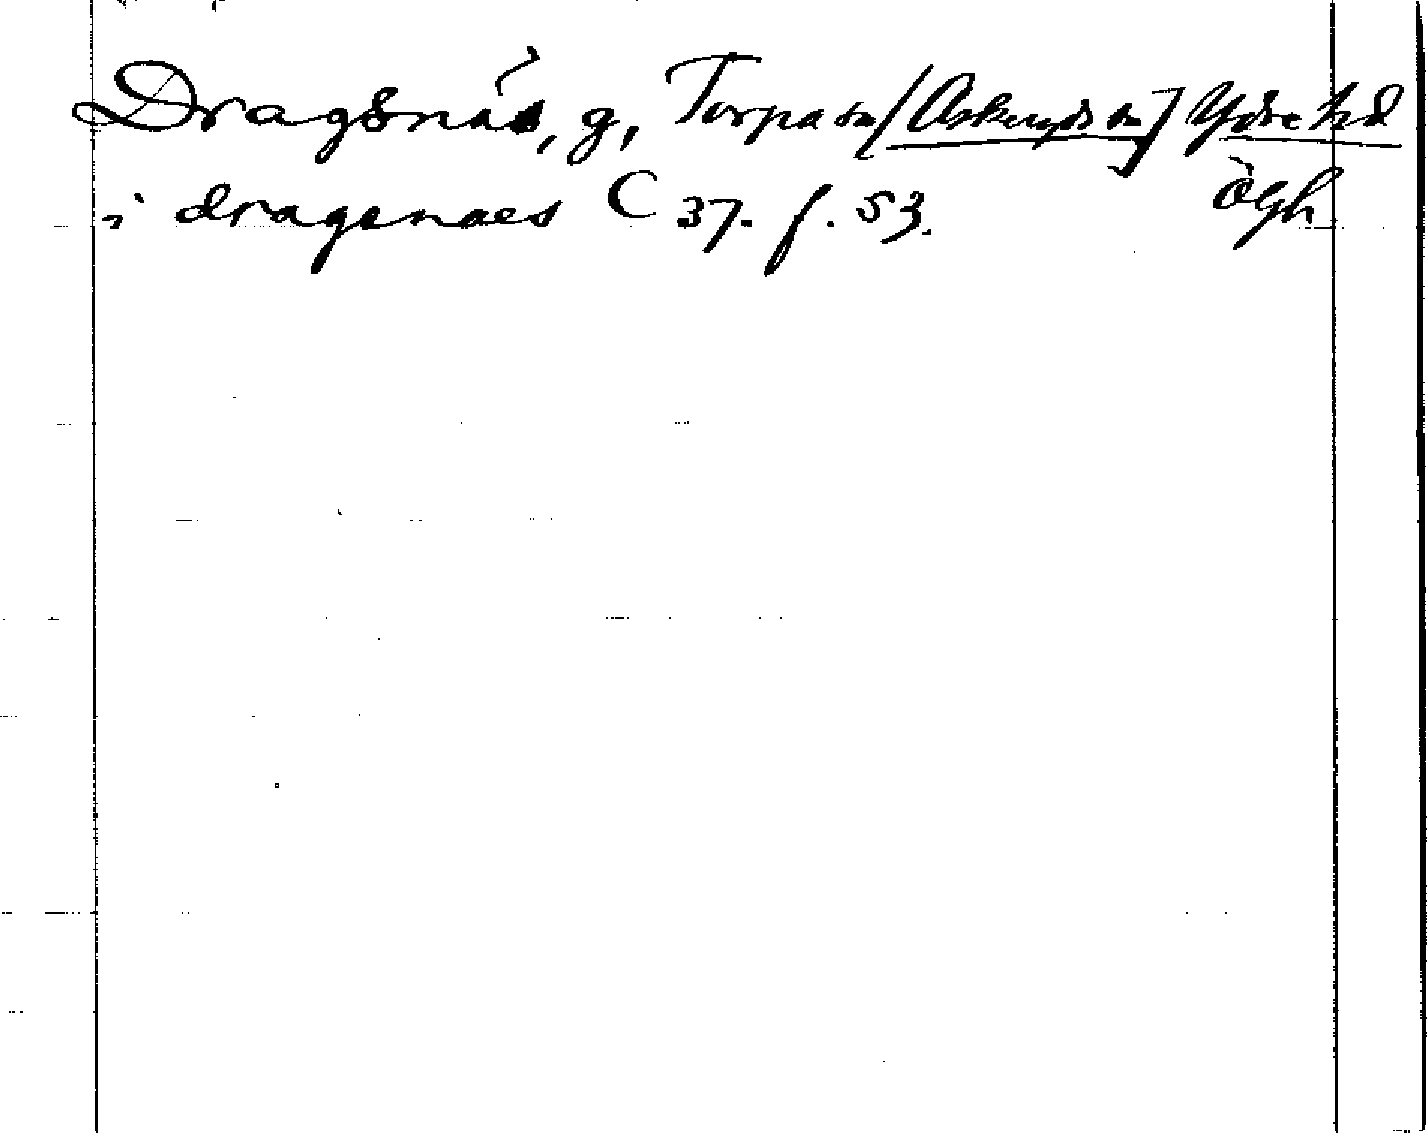 Dragsnäs, g, Torpa sn [Askeryds sn] Ydre hd
i dragsnaes C 37. f. 53. Ögh